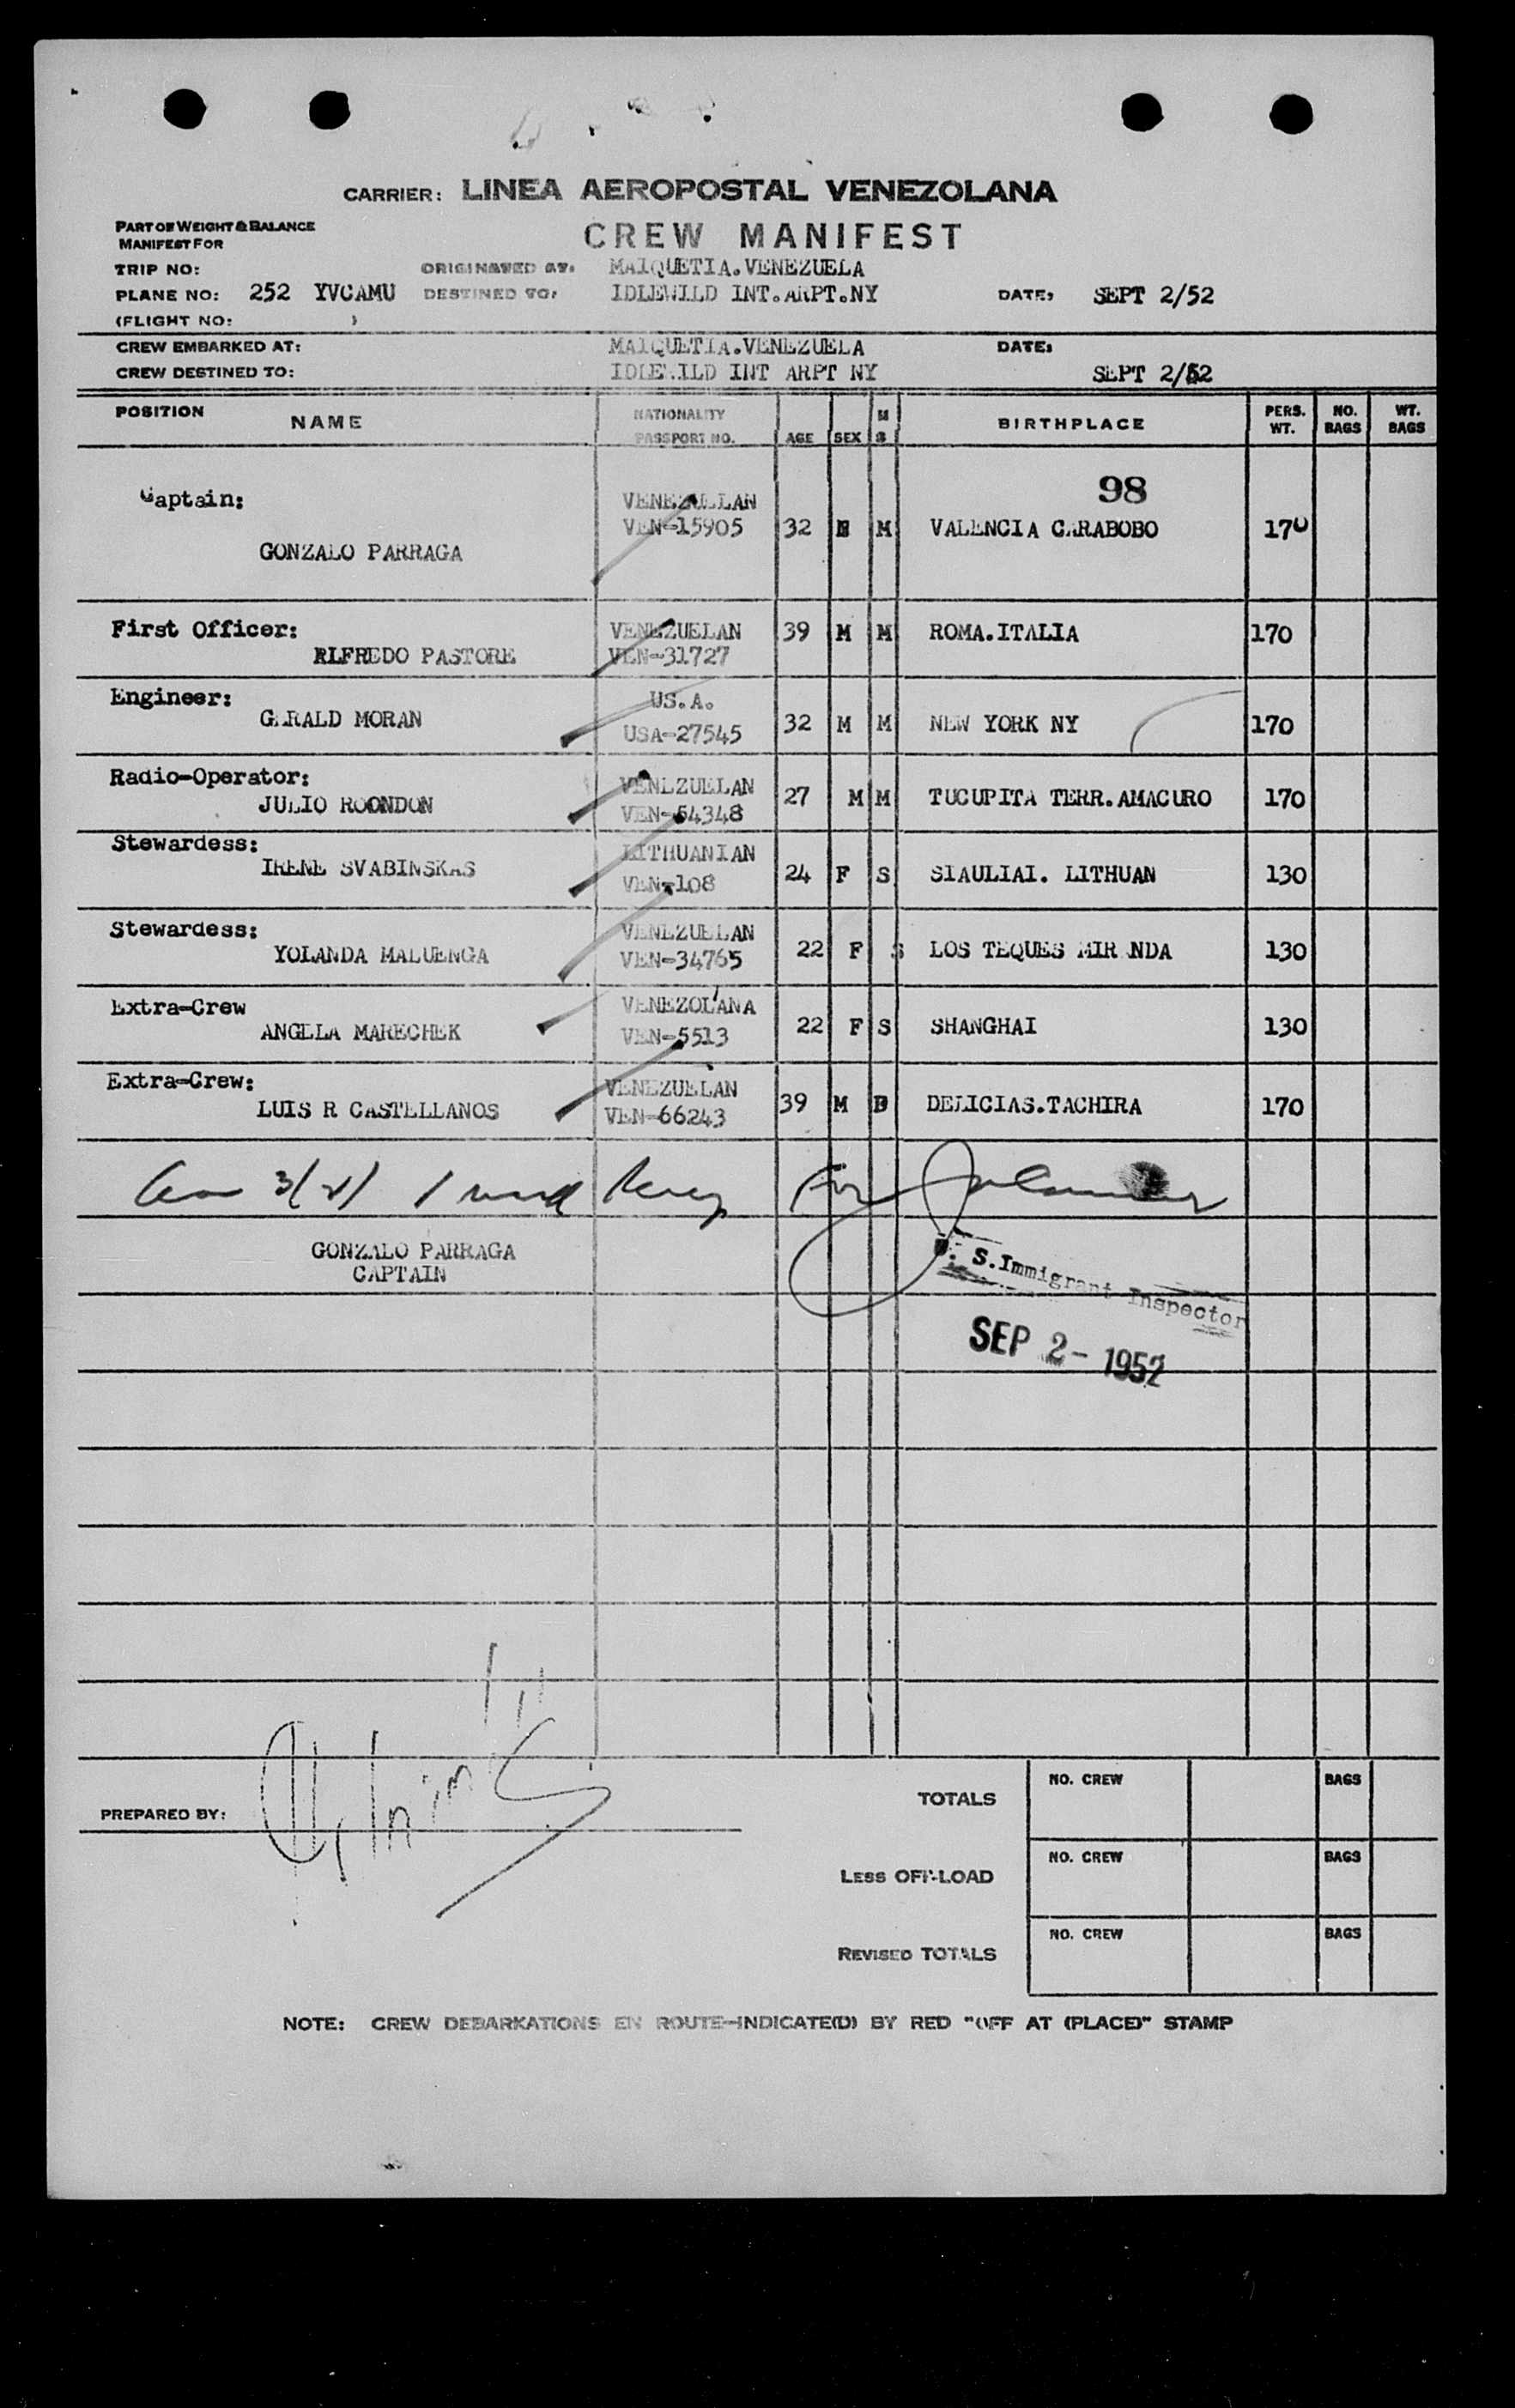 CARRIER: LINEA AEROPOSTAL VENEZOLANA
PART OF WEIGHT & BALANCE
MANIFEST FOR
CREW MANIFEST
TRIP NO: ORIGINATED AT: MAIQUETIA.VENEZUELA
PLANE NO: 252 YVCAMU DESTINED TO: IDLEWILD INT.ARPT.NY DATE: SEPT 2/52
(FLIGHT NO: )
CREW EMBARKED AT: MAIQUETIA.VENEZUELA DATE:
CREW DESTINED TO: IDLEWILD INT ARPT NY SEPT 2/52
POSITION NAME NATIONALITY PASSPORT NO. AGE SEX M S BIRTHPLACE PERS. WT. NO. BAGS WT. BAGS
98
Captain: VENEZUELAN
VEN-15905 32 M VALENCIA CARABOBO 170
GONZALO PARRAGA
First Officer: VENEZUELAN 39 M M ROMA.ITALIA 170
ALFREDO PASTORE VEN-31727
Engineer: US.A.
GERALD MORAN USA-27545 32 M M NEW YORK NY 170
Radio-Operator: VENEZUELAN 27 M M TUCUPITA TERR.AMACURO 170
JULIO ROONDON VEN-54348
Stewardess: LITHUANIAN
IRENE SVABINSKAS VEN-108 24 F S SIAULIAI. LITHUAN 130
Stewardess: VENEZUELAN
YOLANDA MALUENGA VEN-34765 22 F S LOS TEQUES MIR NDA 130
Extra-Crew VENEZOLANA
ANGELA MARECHEK VEN-5513 22 F S SHANGHAI 130
Extra-Crew: VENEZUELAN 39 M DELICIAS.TACHIRA 170
LUIS R CASTELLANOS VEN-66243
GONZALO PARRAGA
CAPTAIN
U. S. Immigrant Inspector
SEP 2 - 1952
PREPARED BY:
TOTALS NO. CREW BAGS
LESS OFF-LOAD NO. CREW BAGS
REVISED TOTALS NO. CREW BAGS
NOTE: CREW DEBARKATIONS EN ROUTE-INDICATE(D) BY RED "OFF AT (PLACE)" STAMP